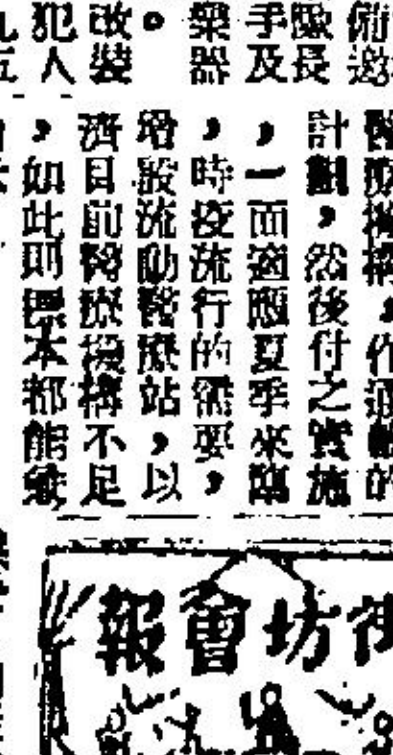 備邀
隊長
手及
樂器
。
改裝
犯人
九五
醫療機構，作通盤的
計劃，然後付之實施
，一面適應夏季來臨
，時疫流行的需要，
增設流動醫療站，以
濟目前醫療機構不足
，如此則標本都能兼
街坊會報